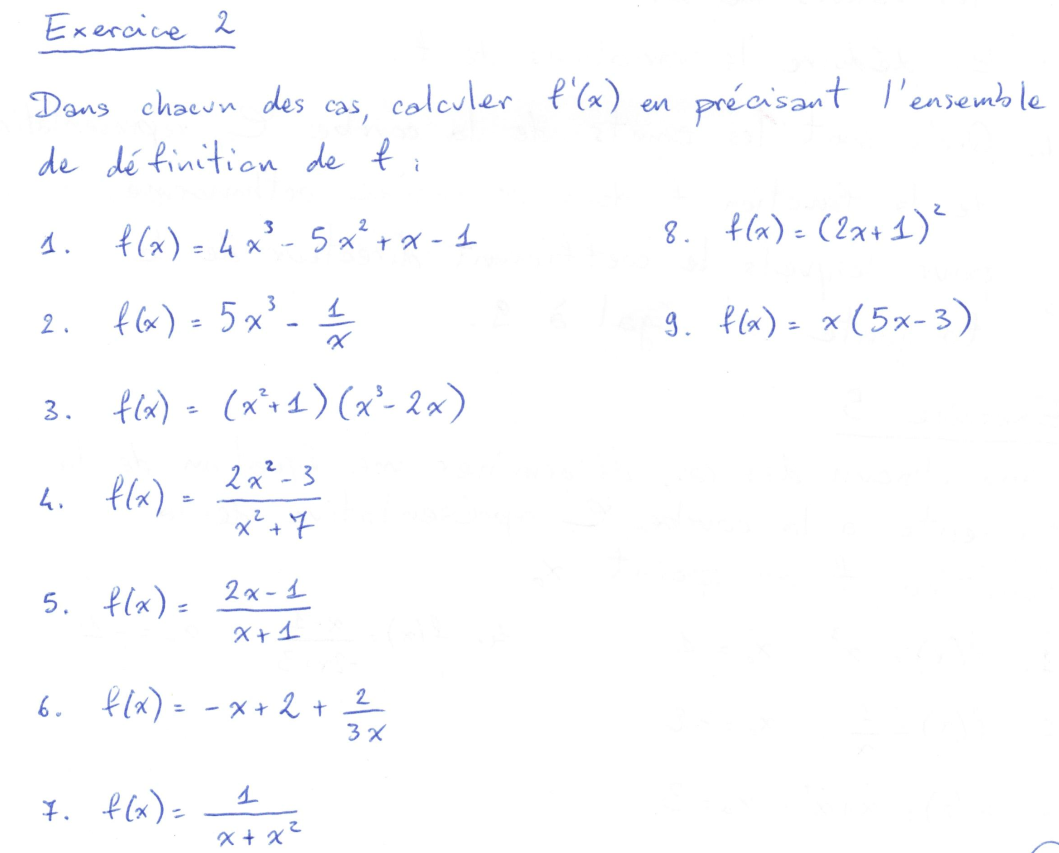 Exercice 2
Dans chacun des cas, calculer f'(x) en précisant l'ensemble
de définition de f :
1. f(x) = 4x³ - 5x² + x - 1
8. f(x) = (2x+1)²
2. f(x) = 5x³ - 1/x
9. f(x) = x(5x-3)
3. f(x) = (x²+1)(x³-2x)
4. f(x) = (2x²-3)/(x²+7)
5. f(x) = (2x-1)/(x+1)
6. f(x) = -x+2+2/(3x)
7. f(x) = 1/(x+x²)